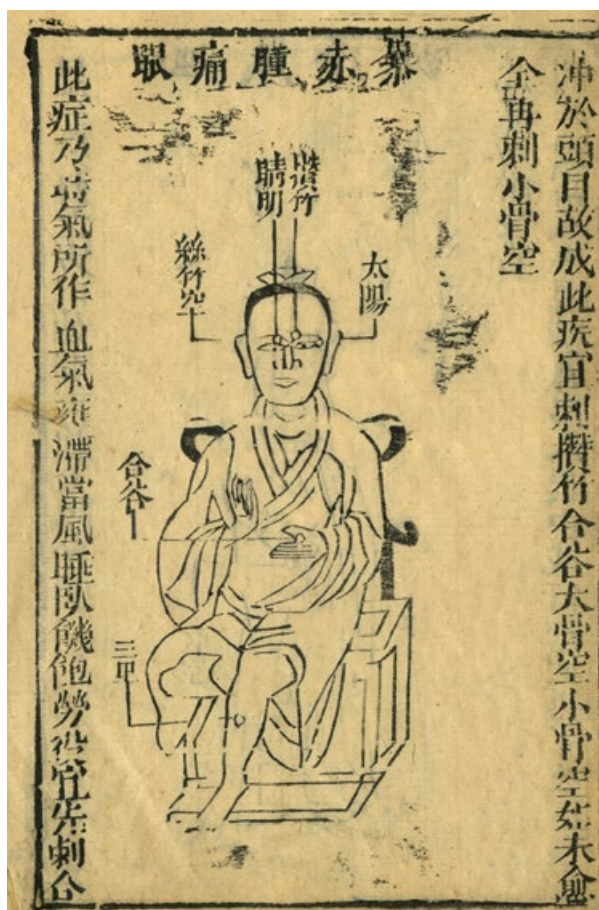 冲於頭目故成此疾宜刺攢竹合谷大骨空小骨空如未愈
全再刺小骨空
暴赤腫痛眼
攢竹
睛明
太陽
絲竹空
合谷
三里
此症乃時氣所作血氣壅滯當風睡臥饑飽勞役宜先刺合